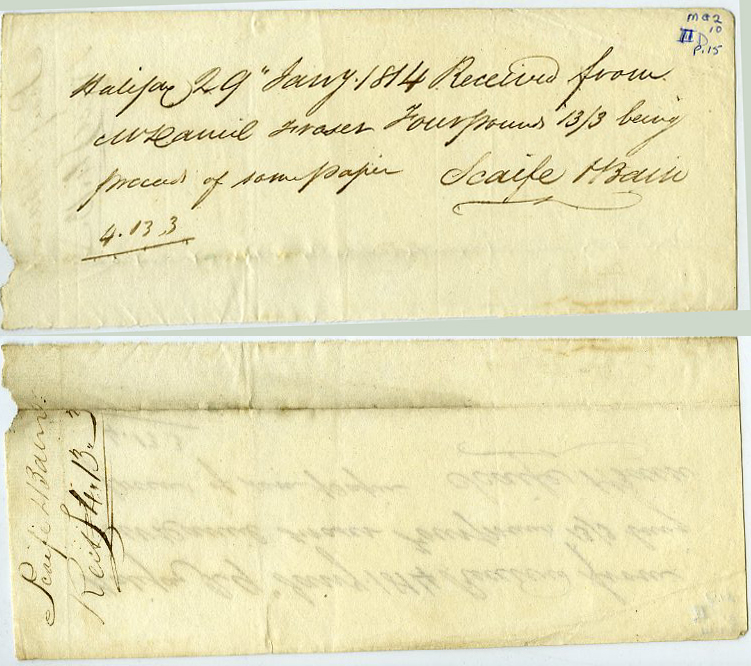 MG2
10
II D
P.15
Halifax 29" Jany. 1814 Received from
Mr Daniel Fraser Four pounds 13/3 being
proceeds of some paper Scaife & Bain
4.13.3
Scaife & Bain
Rect £4.13.3